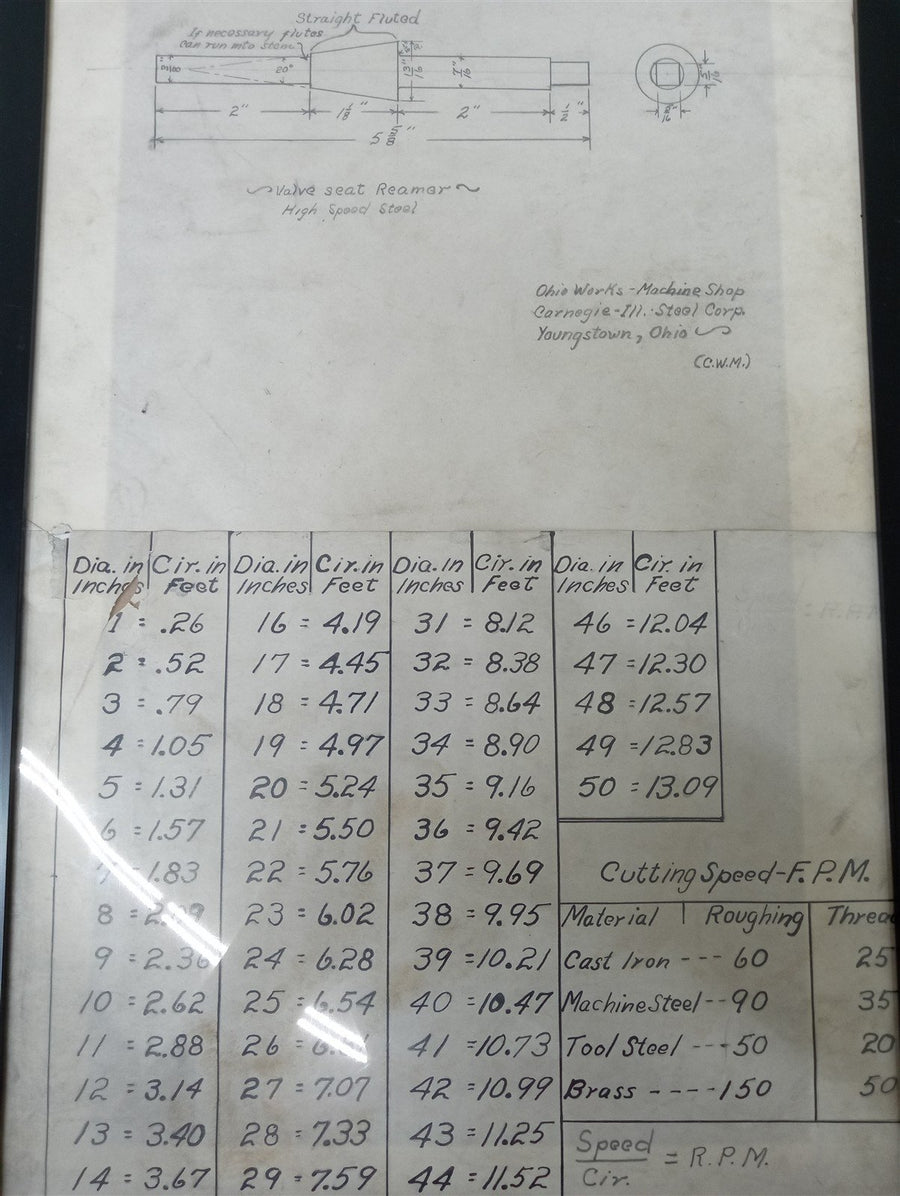 Straight Fluted
If necessary flutes
can run into stem
20°
13/16
7/16"
5/16
5/16"
2" 1 1/8" 2" 1/2"
5 5/8"
Valve seat Reamer
High Speed Steel
Ohio Works - Machine Shop
Carnegie-Ill. Steel Corp.
Youngstown, Ohio
(C.W.M.)
Dia. in Cir. in Dia. in Cir. in Dia. in Cir. in Dia. in Cir. in
Inches Feet Inches Feet Inches Feet Inches Feet
1 = .26 16 = 4.19 31 = 8.12 46 = 12.04
2 = .52 17 = 4.45 32 = 8.38 47 = 12.30
3 = .79 18 = 4.71 33 = 8.64 48 = 12.57
4 = 1.05 19 = 4.97 34 = 8.90 49 = 12.83
5 = 1.31 20 = 5.24 35 = 9.16 50 = 13.09
6 = 1.57 21 = 5.50 36 = 9.42
= 1.83 22 = 5.76 37 = 9.69
8 = 23 = 6.02 38 = 9.95
9 = 2.36 24 = 6.28 39 = 10.21
10 = 2.62 25 = 6.54 40 = 10.47
11 = 2.88 26 = 41 = 10.73
12 = 3.14 27 = 7.07 42 = 10.99
13 = 3.40 28 = 7.33 43 = 11.25
14 = 3.67 29 = 7.59 44 = 11.52
Cutting Speed - F.P.M.
Material Roughing Threa
Cast Iron --- 60 25
Machine Steel -- 90 35
Tool Steel --- 50 20
Brass ---- 150 50
Speed
Cir. = R.P.M.